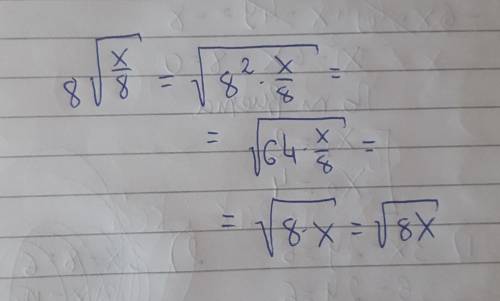 8√(x/8) = √(8² · x/8) =
= √(64 · x/8) =
= √(8 · x) = √(8x)